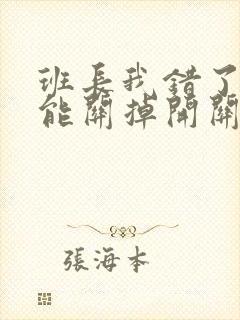 班長我錯了
能關掉開關
張海本